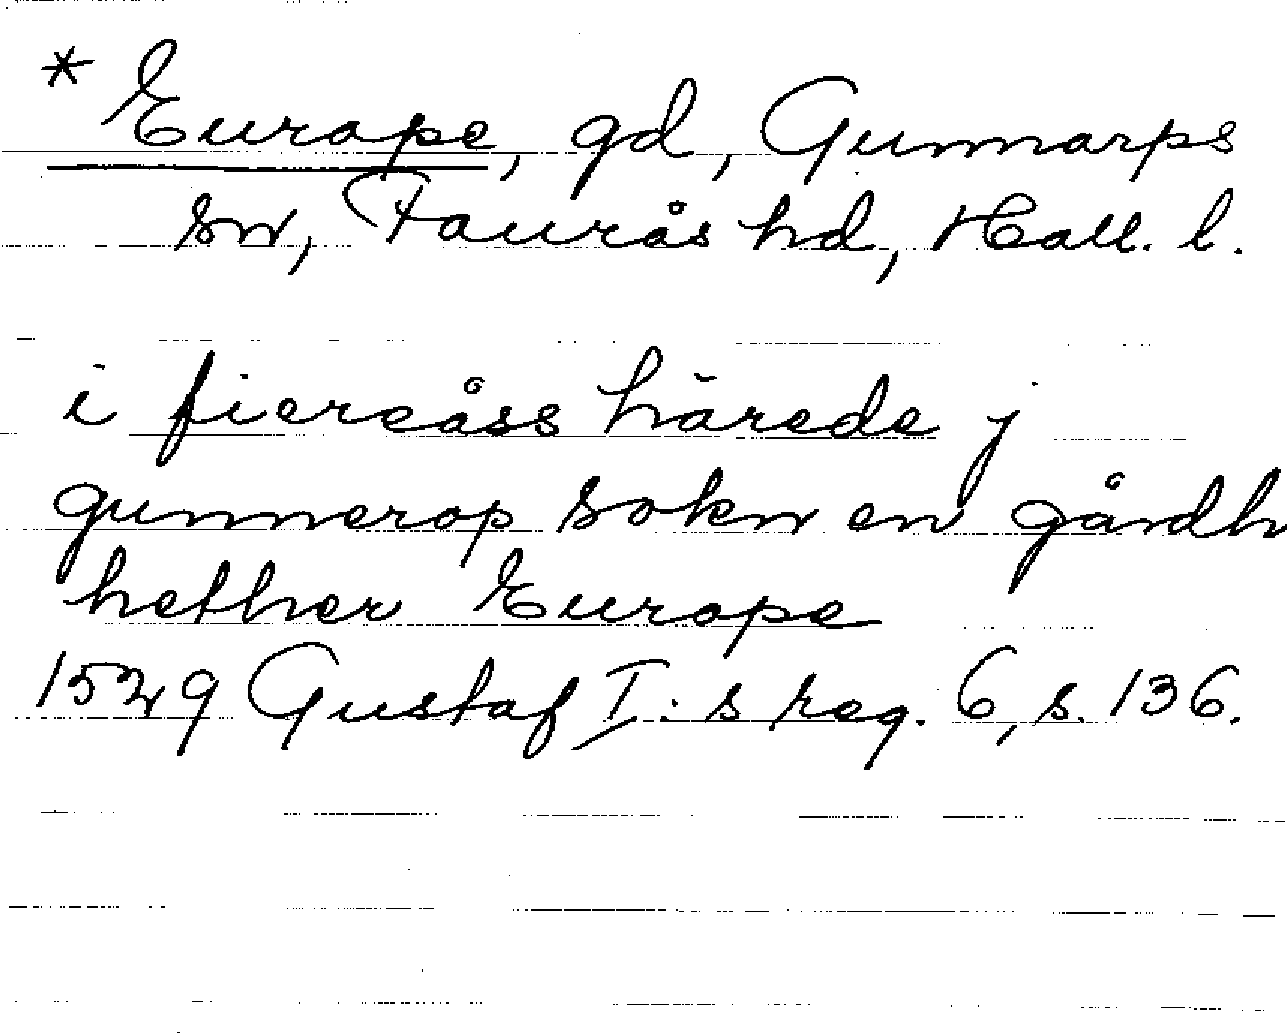 * Europe, gd, Gunnarps
sn, Faurås hd, Hall. l.
i fiereåss härede j
gunnerop sokn en gårdh
hether Europe
1529 Gustaf I:s reg. 6, s. 136.